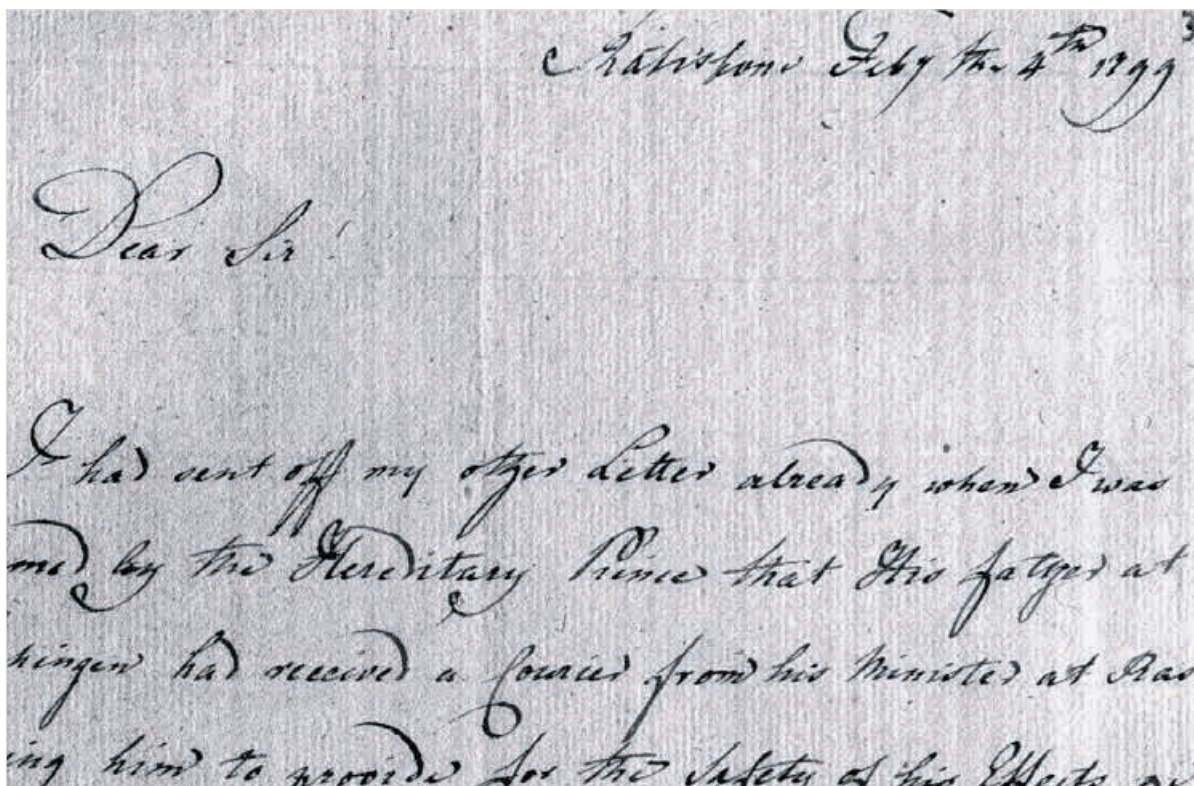 3
Ratispone Feby the 4th 1799
Dear Sir!
I had sent off my other Letter already when I was
med by the Hereditary Prince that His father at
hingen had received a Courier from his Minister at Ras
ing him to provide for the Safety of his Effects